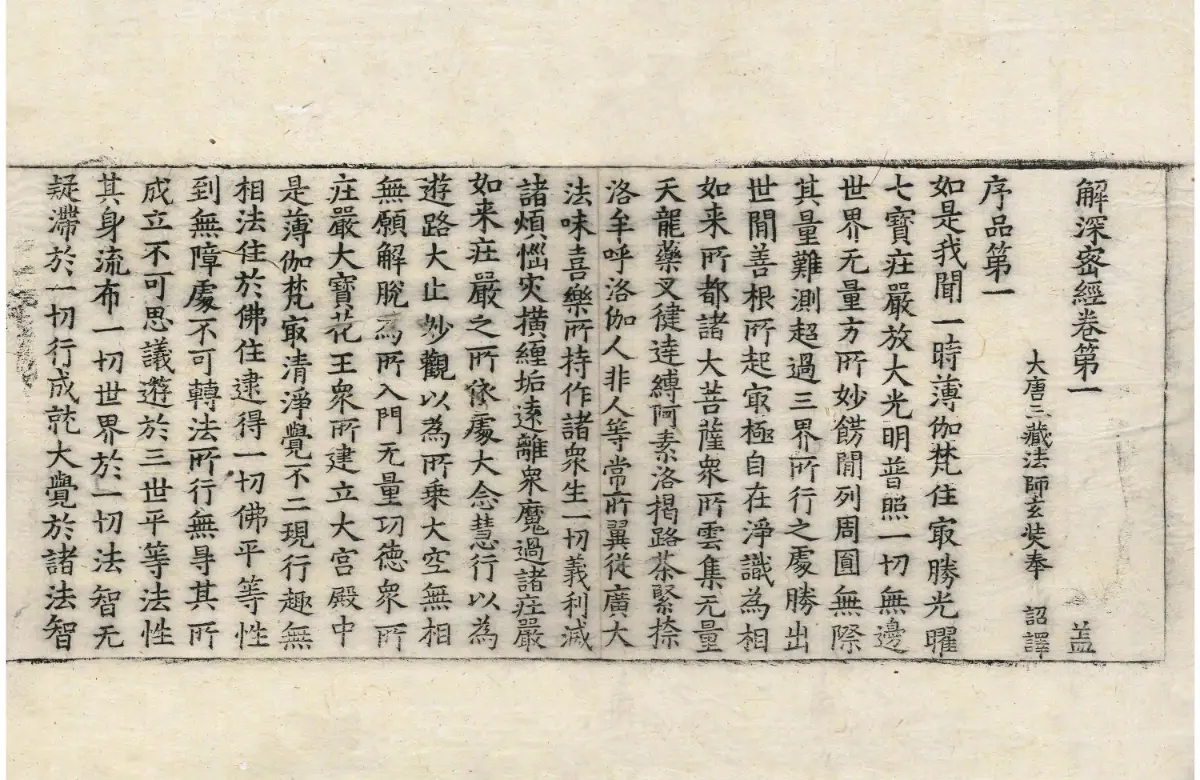 解深密經卷第一 盖
大唐三藏法師玄奘奉 詔譯
序品第一
如是我聞一時薄伽梵住㝡勝光曜
七寶莊嚴放大光明普照一切無邊
世界无量方所妙餝閒列周圓無際
其量難測超過三界所行之處勝出
世閒善根所起㝡極自在淨識為相
如来所都諸大菩薩衆所雲集无量
天龍藥叉健達縛阿素洛揭路荼緊捺
洛牟呼洛伽人非人等常所翼従廣大
法味喜樂所持作諸衆生一切義利滅
諸煩惱灾橫纏垢遠離衆魔過諸莊嚴
如来莊嚴之所依處大念慧行以為
遊路大止妙觀以為所乘大空無相
無願解脫為所入門无量功徳衆所
莊嚴大寶花王衆所建立大宮殿中
是薄伽梵㝡清淨覺不二現行趣無
相法住於佛住逮得一切佛平等性
到無障處不可轉法所行無㝵其所
成立不可思議遊於三世平等法性
其身流布一切世界於一切法智无
疑滯於一切行成就大覺於諸法智